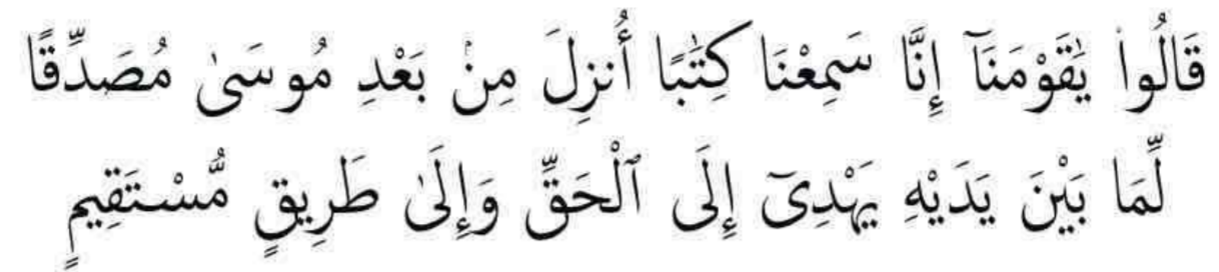 قَالُوا۟ يَٰقَوْمَنَآ إِنَّا سَمِعْنَا كِتَٰبًا أُنزِلَ مِنۢ بَعْدِ مُوسَىٰ مُصَدِّقًا
لِّمَا بَيْنَ يَدَيْهِ يَهْدِىٓ إِلَى ٱلْحَقِّ وَإِلَىٰ طَرِيقٍ مُّسْتَقِيمٍ